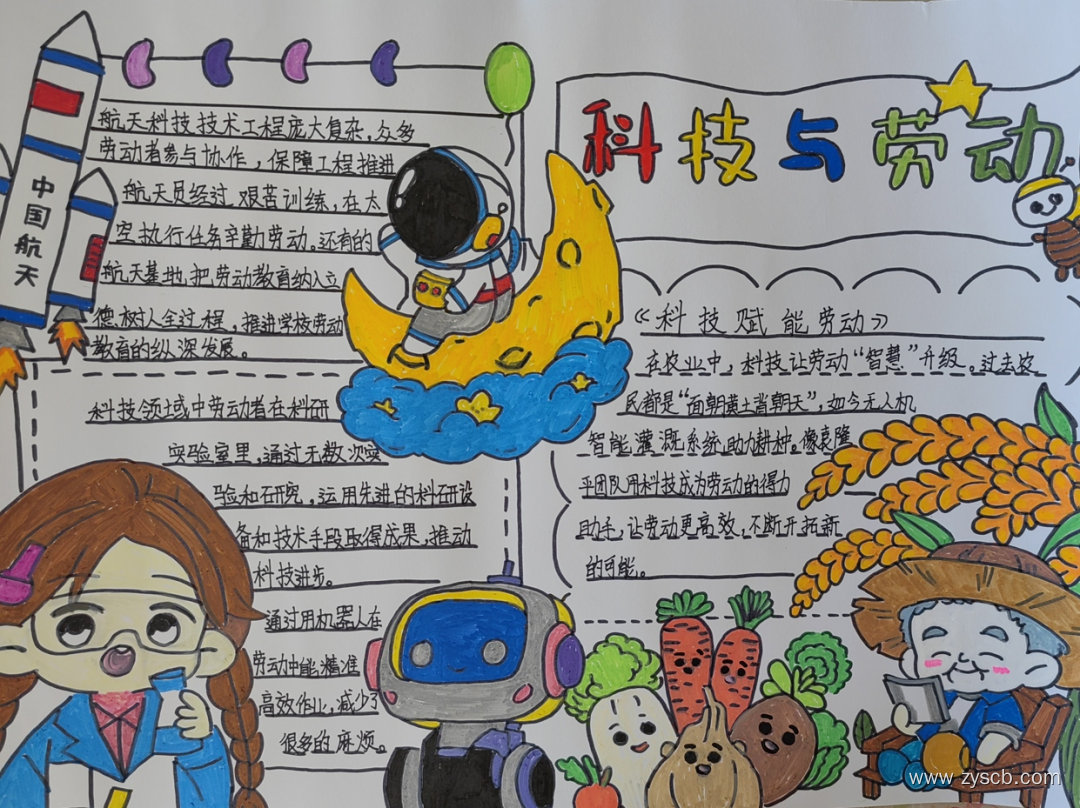 科技与劳动
中国航天
航天科技技术工程庞大复杂,众多
劳动者参与协作,保障工程推进
航天员经过艰苦训练,在太
空执行任务辛勤劳动,还有的
航天基地,把劳动教育纳入立
德树人全过程,推进学校劳动
教育的纵深发展。
科技领域中劳动者在科研
实验室里,通过无数次实
验和研究,运用先进的科研设
备和技术手段取得成果,推动
科技进步。
通过用机器人在
劳动中能精准
高效作业,减少了
很多的麻烦。
《科技赋能劳动》
在农业中,科技让劳动“智慧”升级。过去农
民都是“面朝黄土背朝天”,如今无人机
智能灌溉系统助力耕种。像袁隆
平团队用科技成为劳动的得力
助手,让劳动更高效,不断开拓新
的可能。
www.zyscb.com